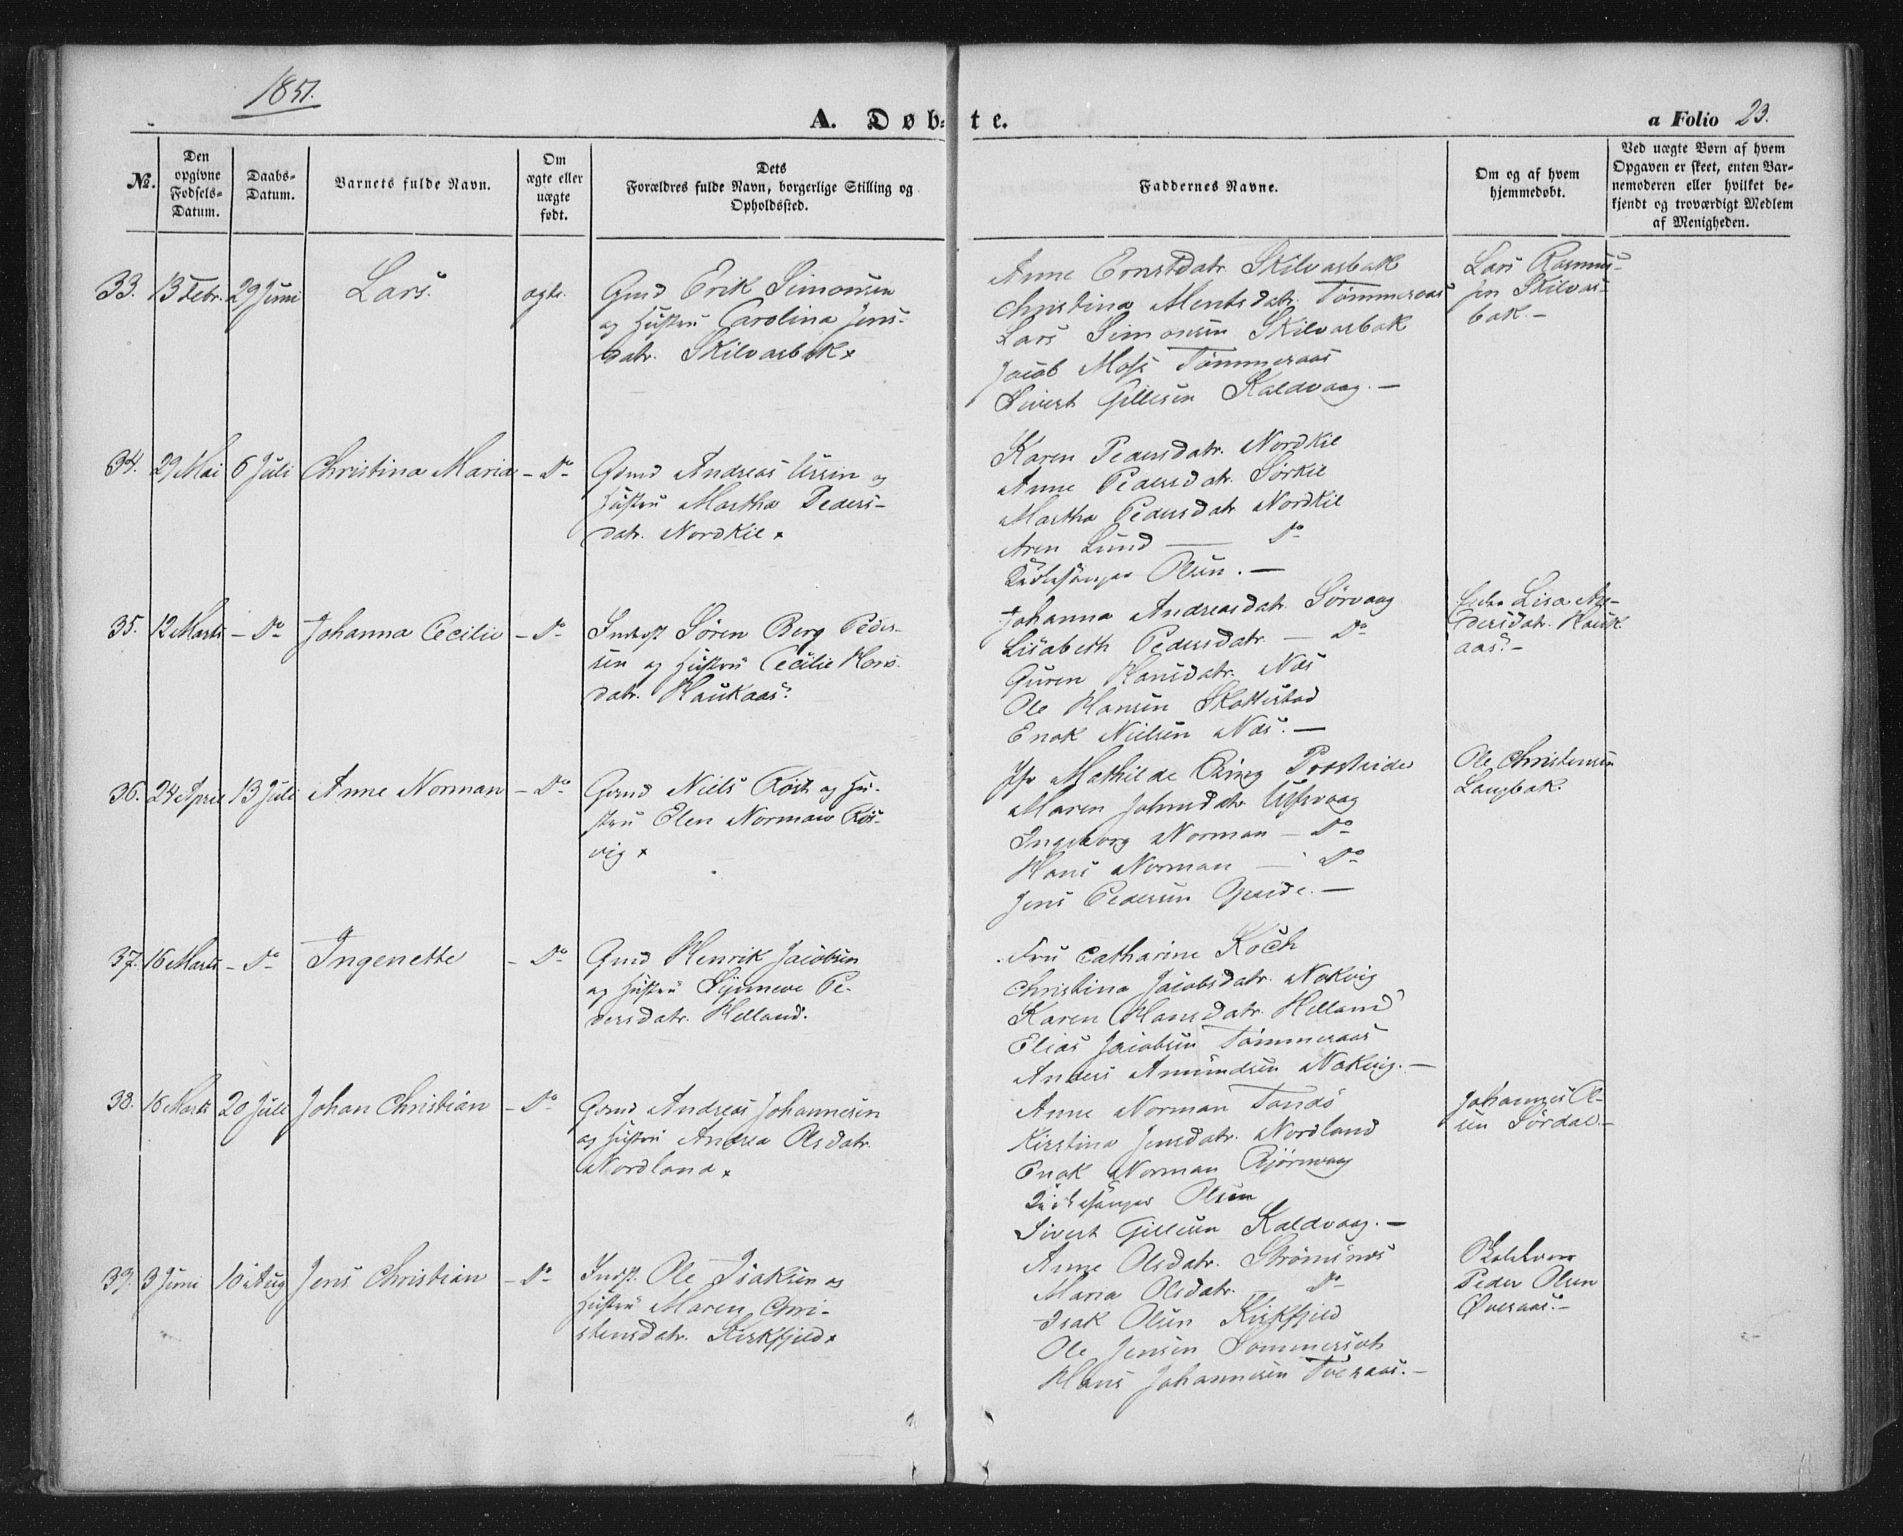 1851.
A. Døb-te.
a Folio 23.
No.
Den opgivne Fødsels-Datum.
Daabs-Datum.
Barnets fulde Navn.
Om ægte eller uægte født.
Dets Forældres fulde Navn, borgerlige Stilling og Opholdssted.
Faddernes Navne.
Om og af hvem hjemmedøbt.
Ved uægte Børn af hvem Opgaven er skeet, enten Barnemoderen eller hvilket bekjendt og troværdigt Medlem af Menigheden.
33. 13 Febr. 29 Juni Lars. ægte. Gmd Erik Simonsen
og Hustru Carolina Jens-
datr. Skilvasbak
Anne Ernstdatr. Skilvasbak
Christina Mentsdatr. Tømmeraas
Lars Simonsen Skilvasbak
Jacob Moss Tømmeraas
Sivert Gillesen Kaldvaag. —
Lars Rasmus-
sen Skilvas-
bak. —
34. 29 Mai 6 Juli Christina Maria - Do Gmd Andreas Ursin og
Hustru Martha Peders-
datr. Nordkil
Karen Pedersdatr. Nordkil
Anne Pedersdatr. Sørkil
Martha Pedersdatr Nordkil
Aren Lund — Do
Kirkesanger Olsen. —
35. 12 Marts - Do Johanna Cecilie - Do Indst Søren Berg Peder-
sen og Hustru Cecilie Hans-
datr. Haukaas.
Johanna Andreasdatr. Sørvaag
Lisabeth Pedersdatr. — Do
Guren Hansdatr. Næs
Ole Hansen Skottestad
Enok Nielsen Næs. —
Lisa An-
dersdatr. Hauk
aas. —
36. 24 April 13 Juli Anne Norman - Do Gmd Niels Røst og Hu-
stru Elen Norman Røs-
vig
Jfr Mathilde Ring Presteide
Maren Johnsdatr Ulfsvaag
Ingeborg Norman — Do
Hans Norman — Do
Jens Pedersen —
Ole Christensen
Langbak.
37. 16 Marts - Do Ingenette - Do Gmd Henrik Jacobsen
og Hustru Synneve Pe-
dersdatr. Helland.
Fru Catharine Koch
Christina Jacobsdatr. Nakvig
Karen Hansdatr. Helland
Elias Jacobsen Tømmeraas
Anders Amundsen Nakvig. —
38. 16 Marts 20 Juli Johan Christian - Do Gmd Andreas Johannesen
og Hustru Andrea Olsdatr.
Nordland
Anne Norman Tandø
Kirstina Jensdatr. Nordland
Enok Norman Bjørnvaag
Kirkesanger Olsen
Sivert Gillesen Kaldvaag. —
Johannes Ol-
sen Sørdal. —
39. 3 Juni 10 Aug Jens Christian - Do Indst. Ole Isaksen og
Hustru Maren Chri-
stensdatr. Kirkfjeld
Anne Olsdatr. Strømsnæs
Maria Olsdatr. Do
Isak Olsen Kirkfjeld
Ole Jensen Sommerset
Hans Johannesen Tveraas. —
Peder Olsen
Øveraas. —